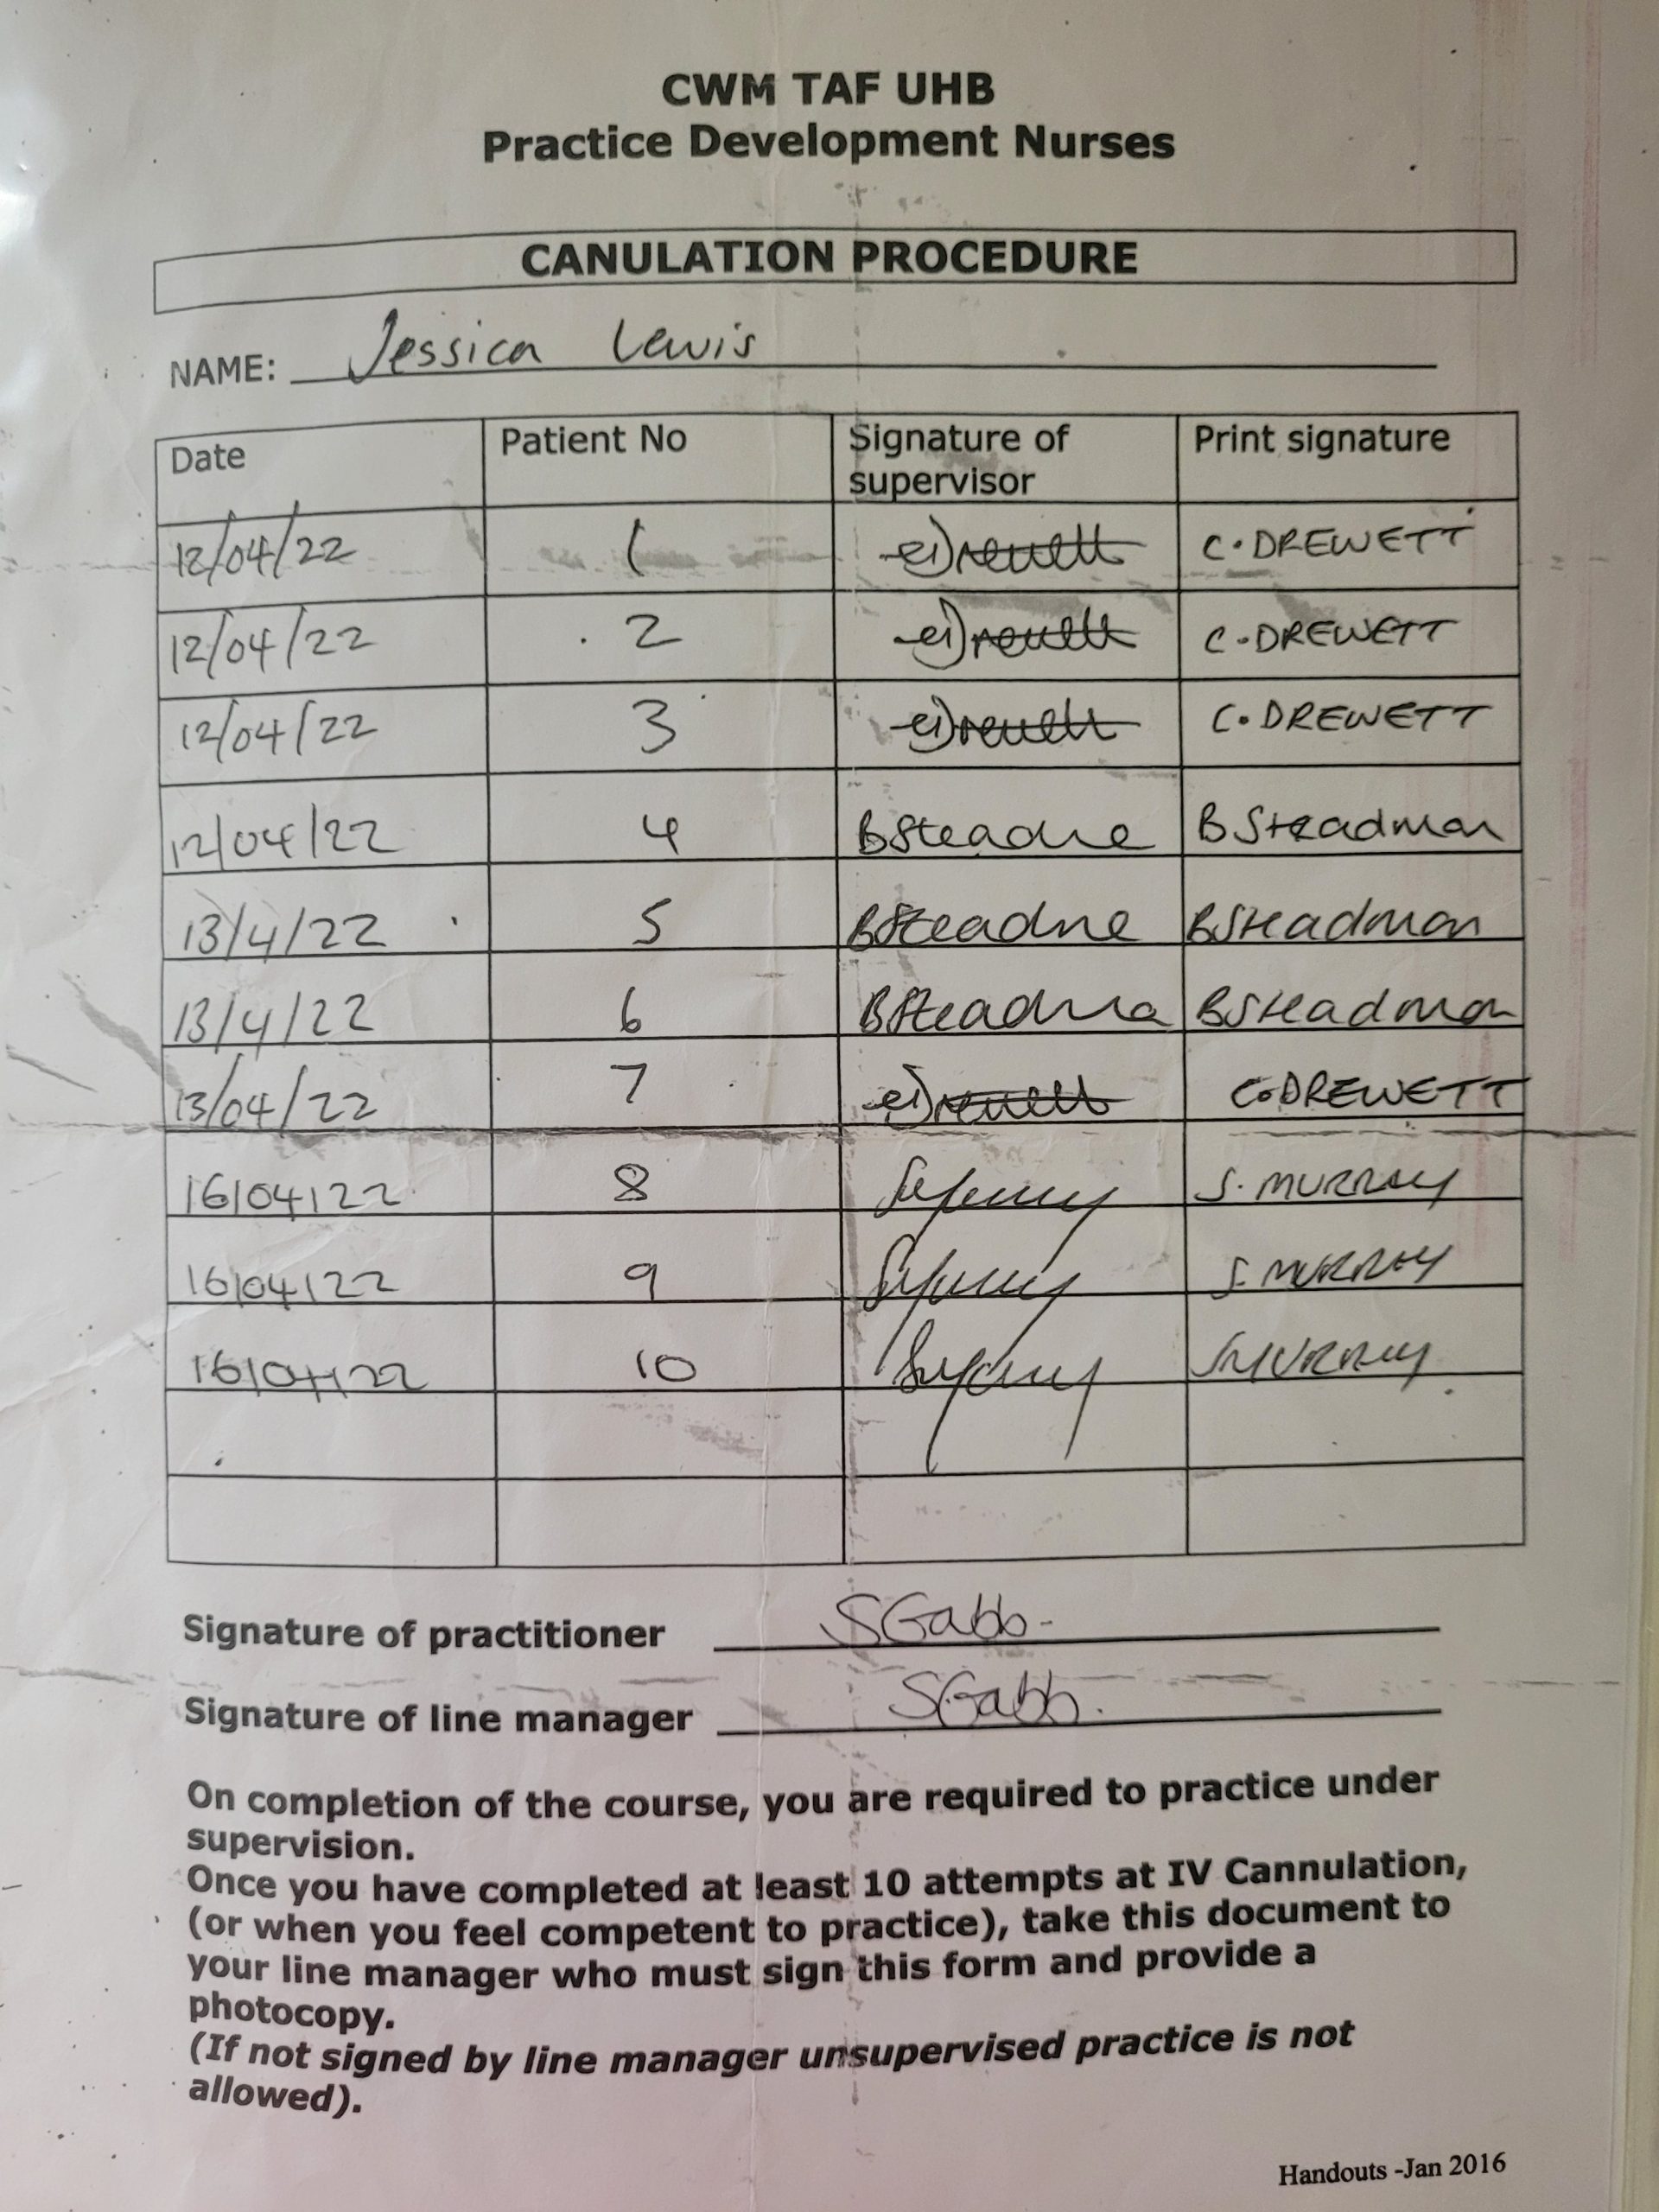 CWM TAF UHB
Practice Development Nurses
CANULATION PROCEDURE
NAME: Jessica Lewis
Date Patient No Signature of supervisor Print signature
12/04/22 1 C. DREWETT
12/04/22 2 C. DREWETT
12/04/22 3 C. DREWETT
12/04/22 4 B Steadman
13/4/22 5 B Steadman
13/4/22 6 B Steadman
13/04/22 7 C. DREWETT
16/04/22 8 S. MURRAY
16/04/22 9 S. MURRAY
16/04/22 10 S MURRAY
Signature of practitioner SGabb.
Signature of line manager SGabb.
On completion of the course, you are required to practice under
supervision.
Once you have completed at least 10 attempts at IV Cannulation,
(or when you feel competent to practice), take this document to
your line manager who must sign this form and provide a
photocopy.
(If not signed by line manager unsupervised practice is not
allowed).
Handouts -Jan 2016